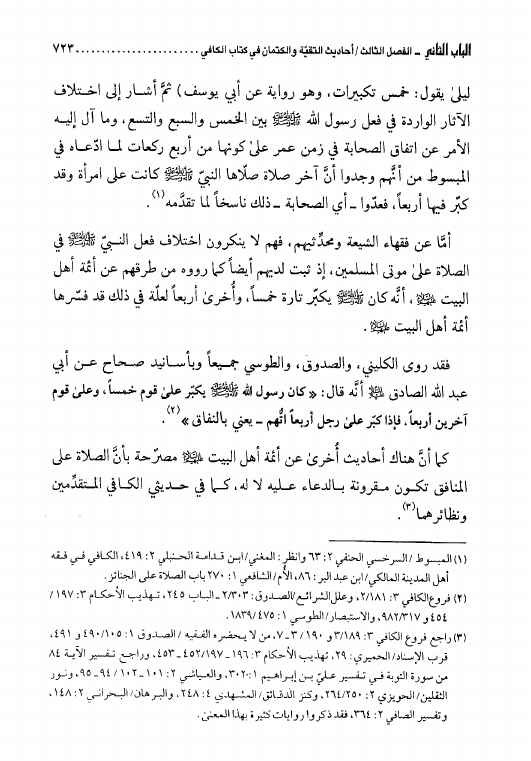 الباب الثاني ـ الفصل الثالث / أحاديث التقيّة والكتمان في كتاب الكافي ......................... ٧٢٣
ليلىٰ يقول: خمس تكبيرات، وهو رواية عن أبي يوسف) ثمَّ أشـار إلى اخـتلاف
الآثار الواردة في فعل رسول الله ﷺ بين الخمس والسبع والتسع، وما آل إليـه
الأمر عن اتفاق الصحابة في زمن عمر علىٰ كونها من أربع ركعات لمـا ادّعـاه في
المبسوط من أنَّهم وجدوا أنَّ آخر صلاة صلّاها النبيّ ﷺ كانت على امرأة وقد
كبّر فيها أربعاً، فعدّوا ـ أي الصحابة ـ ذلك ناسخاً لما تقدَّمه (١).
أمَّا عن فقهاء الشيعة ومحدِّثيهم، فهم لا ينكرون اختلاف فعل النبيّ ﷺ في
الصلاة علىٰ موتى المسلمين، إذ ثبت لديهم أيضاً كما رووه من طرقهم عن أئمّة أهل
البيت ﵈، أنَّه كان ﷺ يكبّر تارة خمساً، وأُخرىٰ أربعاً لعلّة في ذلك قد فسّرها
أئمّة أهل البيت ﵈.
فقد روى الكليني، والصدوق، والطوسي جميعاً وبأسـانيد صـحاح عـن أبي
عبد الله الصادق ﵇ أنَّه قال: «كان رسول الله ﷺ يكبّر علىٰ قوم خمساً، وعلىٰ قوم
آخرين أربعاً، فإذا كبّر علىٰ رجل أربعاً اتُّهم ـ يعني بالنفاق» (٢).
كما أنَّ هناك أحاديث أُخرىٰ عن أئمّة أهل البيت ﵈ مصرّحة بأنَّ الصلاة على
المنافق تكـون مـقرونة بـالدعاء عـليه لا له، كـما في حـديثي الكـافي المـتقدِّمين
ونظائرهما (٣).
(١) المبسوط / السرخسي الحنفي ٢: ٦٣ وانظر: المغني / ابـن قـدامـة الحـنبلي ٢: ٤١٩، الكافي في فقه
أهل المدينة المالكي / ابن عبد البر: ٨٦، الأُم / الشافعي ١: ٢٧٠ باب الصلاة على الجنائز.
(٢) فروع الكافي ٣: ٢/١٨١، وعلل الشرائع / الصدوق: ٢/٣٠٣ ـ الباب ٢٤٥، تـهذيب الأحكام ٣: ١٩٧ /
٤٥٤ و ٩٨٢/٣١٧، والاستبصار / الطوسي ١: ١٨٣٩/٤٧٥.
(٣) راجع فروع الكافي ٣: ٣/١٨٩ و ١٩٠ / ٣ ـ ٧، من لا يحضره الفقيه / الصدوق ١: ٤٩٠/١٠٥ و ٤٩١،
قرب الإسناد / الحميري: ٢٩، تهذيب الأحكام ٣: ١٩٦ ـ ٤٥٢/١٩٧ ـ ٤٥٣، وراجـع تـفسير الآيـة ٨٤
من سورة التوبة في تـفسير عـليّ بـن إبـراهيم ١: ٣٠٢، والعياشي ٢: ١٠١ ـ ١٠٢ / ٩٤ ـ ٩٥، ونور
الثقلين / الحويزي ٢: ٢٥٠ / ٢٦٤، وكنز الدقائق / المشهدي ٤: ٢٤٨، والبرهان / البحراني ٢: ١٤٨،
وتفسير الصافي ٢: ٣٦٤، فقد ذكروا روايات كثيرة بهذا المعنىٰ.